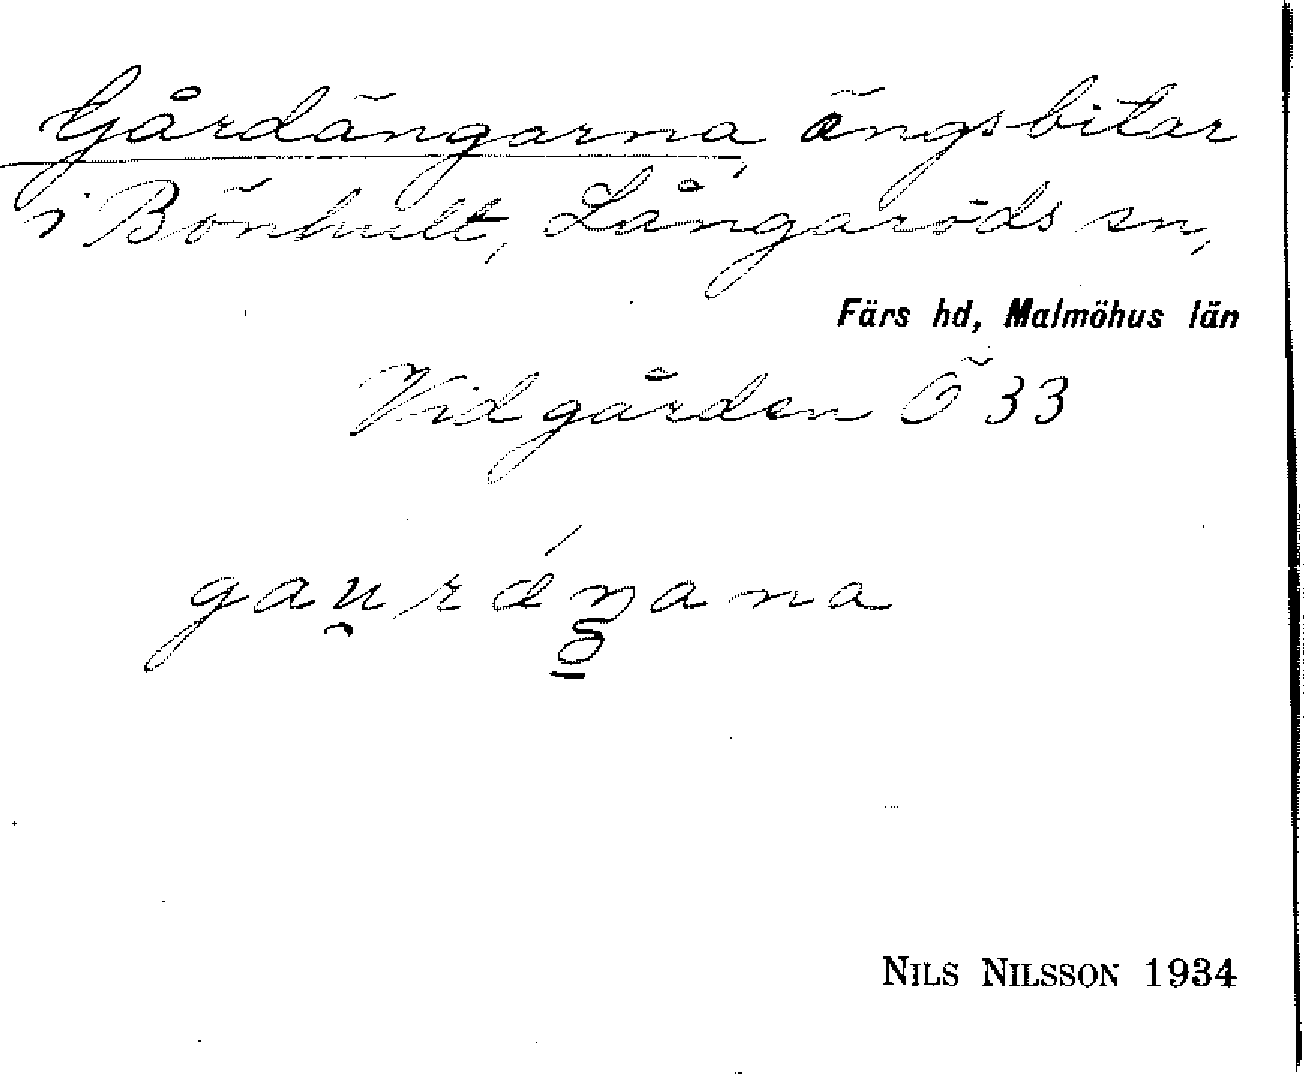 Gårdängarna, ängsbitar
i Bönhult, Långaröds sn,
Färs hd, Malmöhus län
Vid gården Ö 33
gau̯ráŋana
NILS NILSSON 1934